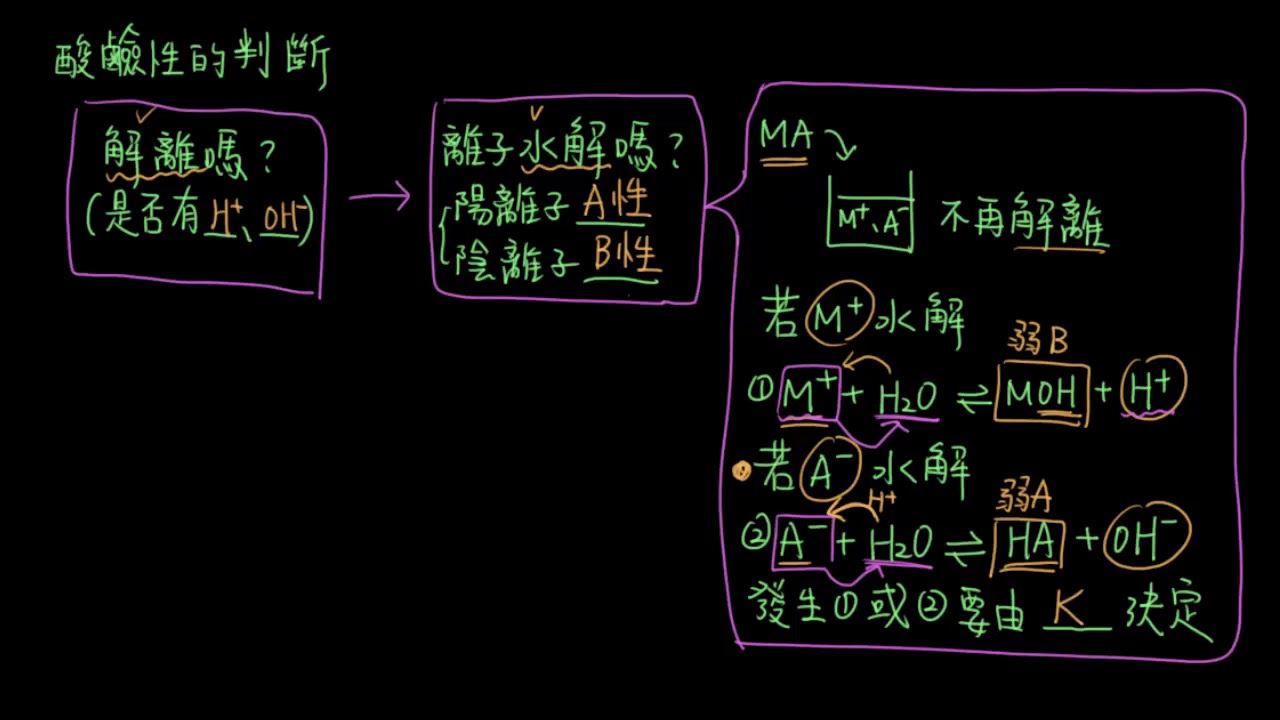 酸鹼性的判斷
解離嗎?
(是否有H⁺、OH⁻)
離子水解嗎?
陽離子 A性
陰離子 B性
MA
M⁺、A⁻ 不再解離
若 M⁺ 水解
弱B
① M⁺ + H₂O ⇌ MOH + H⁺
若 A⁻ 水解
H⁺
弱A
② A⁻ + H₂O ⇌ HA + OH⁻
發生①或②要由 K 決定